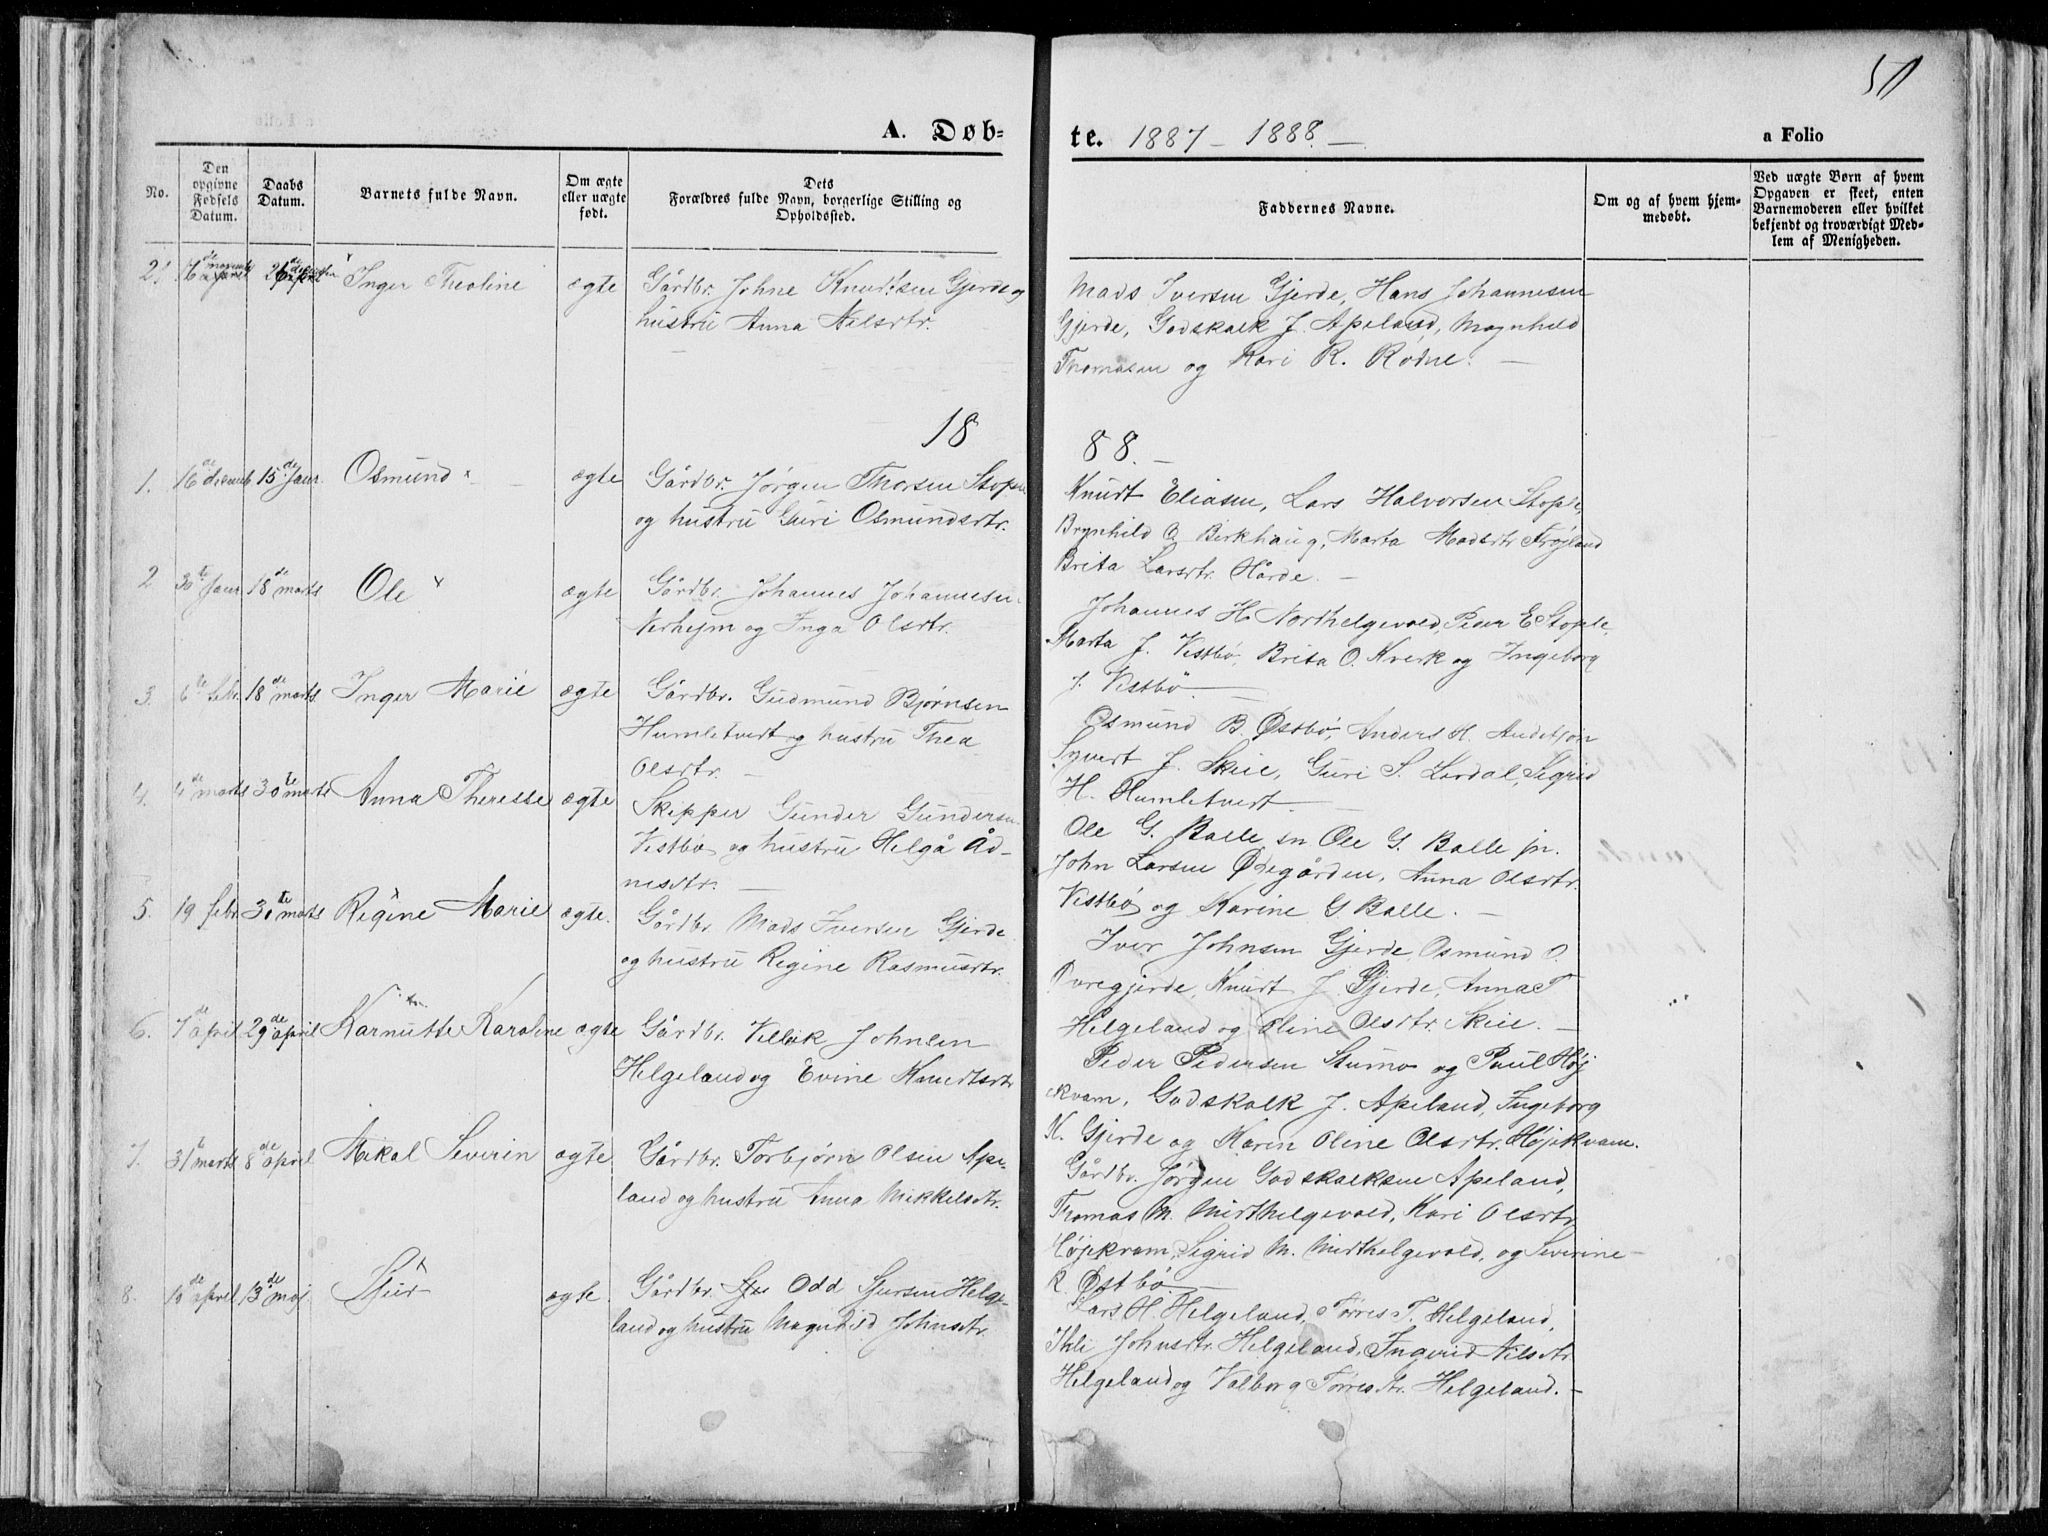 50
A. Døb-
te. 1887 - 1888. -
a Folio
No.
Den opgivne Fødsels Datum.
Daabs Datum.
Barnets fulde Navn.
Om ægte eller uægte født.
Dets Forældres fulde Navn, borgerlige Stilling og Opholdssted.
Faddernes Navne.
Om og af hvem hjemmedøbt.
Ved uægte Børn af hvem Opgaven er skeet, enten Barnemoderen eller hvilket bekjendt og troværdigt Medlem af Menigheden.
21 16de novemb 26de Inger Theoline ægte Gårdbr. Johne Knudtsen Gjerde og
hustru Anna Nilsdtr.
Mads Iversen Gjerde, Hans Johannesen
Gjerde, Godskalk J. Apeland, Magnhild
Thomasen og Kari R. Rødne. -
1888. -
1. 16de decemb 15de Janr. Osmund ægte Gårdbr. Jørgen Thorsen Stople
og hustru Guri Osmundsdtr.
Knudt Eliasen, Lars Halvorsen Stople,
Brynhild O. Birkhaug, Marta Madsdtr Frøjland
Brita Larsdtr. Hårde. -
2 30te Janr 18de marts Ole ægte Gårdbr. Johannes Johannesen
Nerhejm og Inga Olsdtr.
Johannes H. Northelgevold, Peder E Stople,
Marta J. Vestbø, Brita O. Kverk og Ingeborg
J. Vestbø. -
3. 6te febr. 18de marts Inger Marie ægte Gårdbr. Gudmund Bjørnsen
Humletvedt og hustru Thea
Olsdtr. -
Osmund B. Østbø, Anders H.
Syvert J. Skeie, Guri S. Lerdal, Sigrid
H. Humletvedt. -
4. 4de marts 30te marts Anna Theresse ægte Skipper Gunder Gundersen
Vestbø og hustru Helga Åd-
nesdtr. -
Ole G. Balle sn Ole G. Balle jn.
John Larsen Ødegården, Anna Olsdtr.
Vestbø og Karine G. Balle. -
5. 19 febr. 30te marts Regine Marie ægte. Gårdbr. Mads Iversen Gjerde
og hustru Regine Rasmusdtr.
Iver Johnsen Gjerde, Osmund O.
Øvregjerde, Knudt J. Gjerde, Anna T
Helgeland og Oline Olsdtr. Skeie. -
6. 7de april 29de april Karnutte Karoline ægte Gårdbr. Vellik Johnsen
Helgeland og Evine Knudtsdtr
Peder Pedersen Stumo og Paul Høj
ekvam, Godskalk J. Apeland, Ingeborg
K. Gjerde og Karen Oline Olsdtr. Højekvam.
7. 31te marts 8de april Mikal Severin ægte Gårdbr. Torbjørn Olsen Ape-
land og hustru Anna Mikkelsdtr.
Gårdbr. Jørgen Godskalksen Apeland,
Thomas M. Midthelgevold, Kari Olsdtr
Højekvam, Sigrid M. Midthelgevold, og Severine
R. Østbø. -
8. 10de april 13de maj Sjur ægte Gårdbr. Odd Sjursen Helge-
land og hustru Magnhild Johnsdtr.
Lars H. Helgeland, Tørres T. Helgeland,
Johnsdtr Helgeland, Ingerid Nilsdtr
Helgeland og Valborg Tørresdtr. Helgeland. -